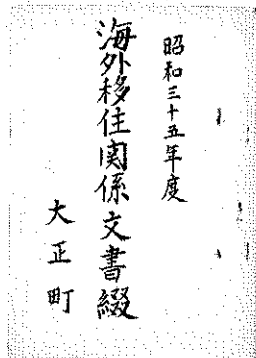 昭和三十五年度
海外移住関係文書綴
大正町